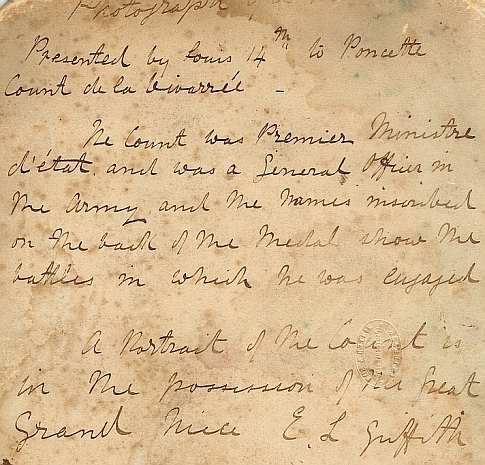 Photograph of
Presented by Louis 14th to Poncette
Count de la Vivarrée -
The Count was Premier Ministre
d'état, and was a General Officer in
the Army and the names inscribed
on the back of the Medal show the
battles in which he was engaged
A Portrait of the Count is
in the possession of his Great
Grand Niece E. L Griffith